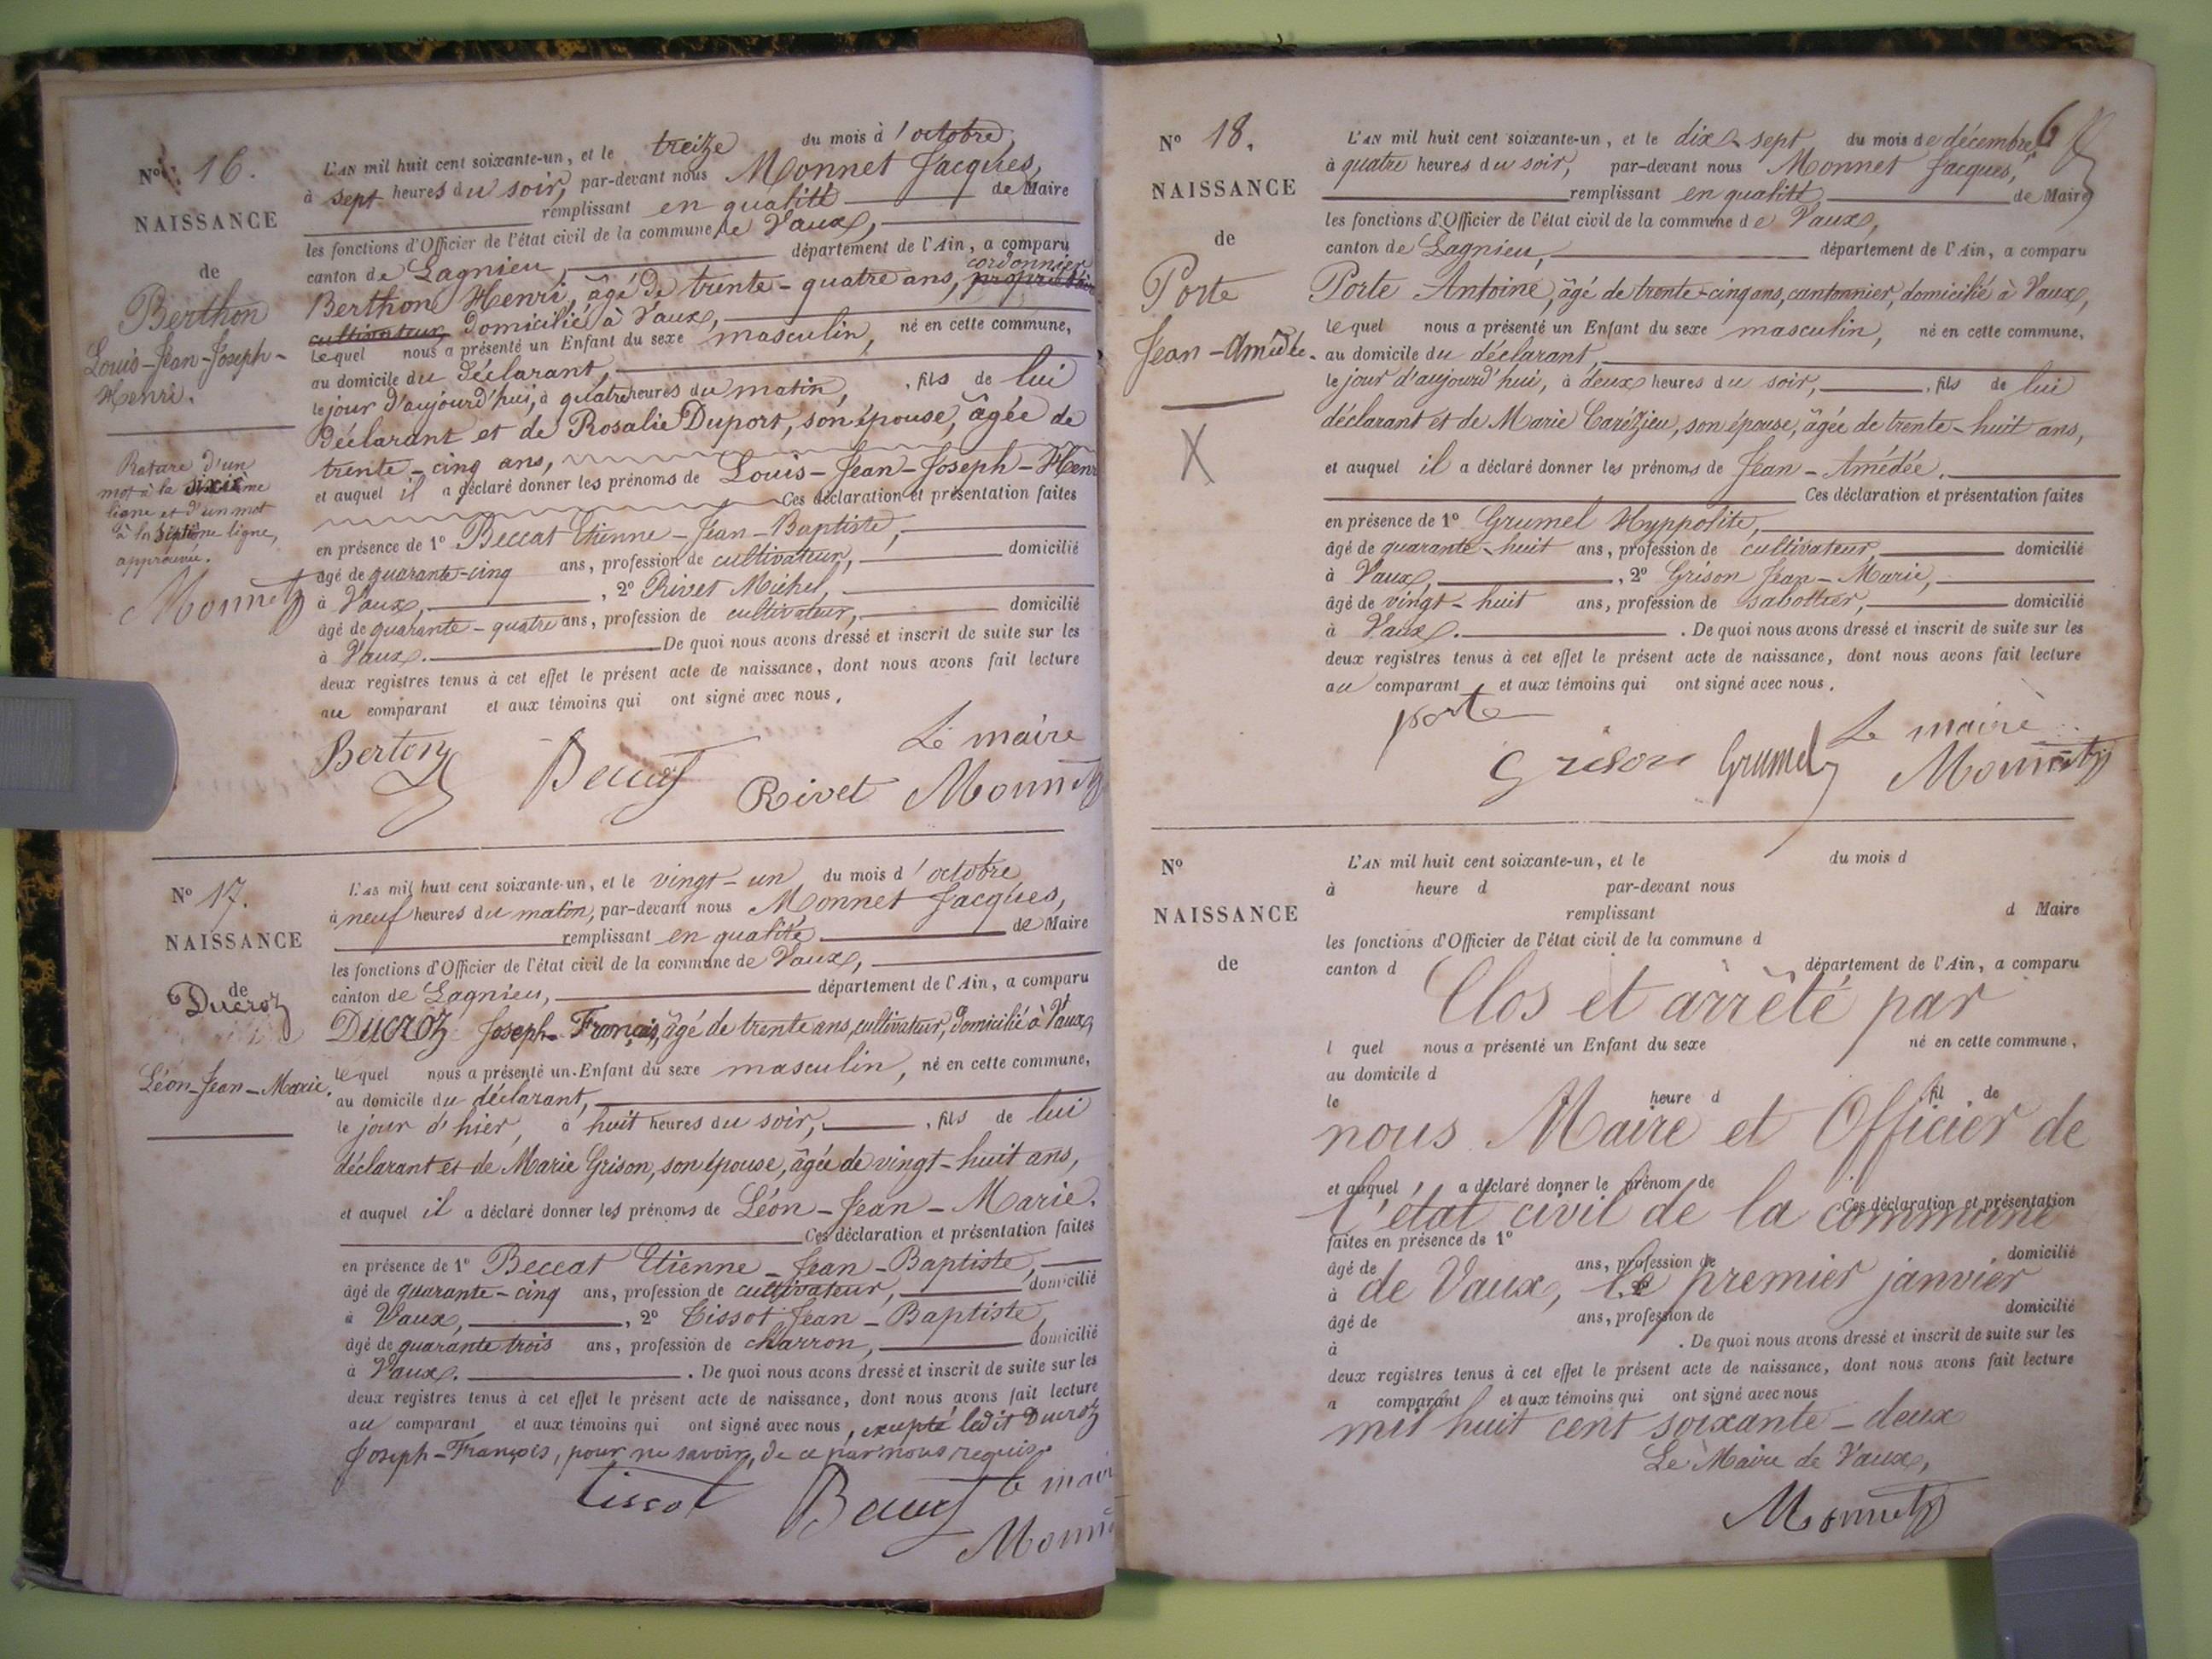 N° 16.
NAISSANCE
de
Berthon
Louis-Jean-Joseph-
Henri.
Rature d'un
mot à la sixième
ligne et d'un mot
à la septième ligne,
approuvée.
Monnet
L'AN mil huit cent soixante-un, et le treize du mois d'octobre,
à sept heures du soir, par-devant nous Monnet Jacques,
remplissant en qualité de Maire
les fonctions d'Officier de l'état civil de la commune de Vaux,
canton de Lagnieu, département de l'Ain, a comparu
cordonnier
Berthon Henri, âgé de trente-quatre ans, propriétaire
cultivateur domicilié à Vaux,
lequel nous a présenté un Enfant du sexe masculin, né en cette commune,
au domicile du déclarant,
le jour d'aujourd'hui, à quatre heures du matin, , fils de lui
déclarant et de Rosalie Duport, son épouse, âgée de
trente-cinq ans,
et auquel il a déclaré donner les prénoms de Louis-Jean-Joseph-Henri
Ces déclaration et présentation faites
en présence de 1° Beccat Etienne-Jean-Baptiste,
âgé de quarante-cinq ans, profession de cultivateur, domicilié
à Vaux, , 2° Rivet Michel,
âgé de quarante-quatre ans, profession de cultivateur, domicilié
à Vaux. De quoi nous avons dressé et inscrit de suite sur les
deux registres tenus à cet effet le présent acte de naissance, dont nous avons fait lecture
au comparant et aux témoins qui ont signé avec nous.
Le maire
Berton Beccat Rivet Monnet
N° 17.
NAISSANCE
de
Ducroz
Léon-Jean-Marie.
L'AN mil huit cent soixante-un, et le vingt-un du mois d'octobre
à neuf heures du matin, par-devant nous Monnet Jacques,
remplissant en qualité de Maire
les fonctions d'Officier de l'état civil de la commune de Vaux,
canton de Lagnieu, département de l'Ain, a comparu
Ducroz Joseph-François, âgé de trente ans, cultivateur, domicilié à Vaux,
lequel nous a présenté un Enfant du sexe masculin, né en cette commune,
au domicile du déclarant,
le jour d'hier, à huit heures du soir, , fils de lui
déclarant et de Marie Grison, son épouse, âgée de vingt-huit ans,
et auquel il a déclaré donner les prénoms de Léon-Jean-Marie.
Ces déclaration et présentation faites
en présence de 1° Beccat Etienne-Jean-Baptiste,
âgé de quarante-cinq ans, profession de cultivateur, domicilié
à Vaux, , 2° Tissot Jean-Baptiste,
âgé de quarante trois ans, profession de charron, domicilié
à Vaux. . De quoi nous avons dressé et inscrit de suite sur les
deux registres tenus à cet effet le présent acte de naissance, dont nous avons fait lecture
au comparant et aux témoins qui ont signé avec nous, excepté ledit Ducroz
Joseph-François, pour ne savoir, de ce par nous requis.
Tissot Beccat le maire
Monnet
6
N° 18.
NAISSANCE
de
Porte
Jean-Amédée.
X
L'AN mil huit cent soixante-un, et le dix-sept du mois de décembre,
à quatre heures du soir, par-devant nous Monnet Jacques,
remplissant en qualité de Maire
les fonctions d'Officier de l'état civil de la commune de Vaux,
canton de Lagnieu, département de l'Ain, a comparu
Porte Antoine, âgé de trente-cinq ans, cantonnier, domicilié à Vaux,
lequel nous a présenté un Enfant du sexe masculin, né en cette commune,
au domicile du déclarant,
le jour d'aujourd'hui, à deux heures du soir, , fils de lui
déclarant et de Marie Carézieu, son épouse, âgée de trente-huit ans,
et auquel il a déclaré donner les prénoms de Jean-Amédée.
Ces déclaration et présentation faites
en présence de 1° Grumel Hyppolite,
âgé de quarante-huit ans, profession de cultivateur, domicilié
à Vaux, , 2° Grison Jean-Marie,
âgé de vingt-huit ans, profession de sabottier, domicilié
à Vaux. . De quoi nous avons dressé et inscrit de suite sur les
deux registres tenus à cet effet le présent acte de naissance, dont nous avons fait lecture
au comparant et aux témoins qui ont signé avec nous.
porte Le maire
Grison Grumel Monnet
N°
NAISSANCE
de
L'AN mil huit cent soixante-un, et le du mois d
à heure d par-devant nous
remplissant d Maire
les fonctions d'Officier de l'état civil de la commune d
canton d département de l'Ain, a comparu
Clos et arrêté par
l quel nous a présenté un Enfant du sexe né en cette commune,
au domicile d
le heure d fil de
nous Maire et Officier de
et auquel a déclaré donner le prénom de
Ces déclaration et présentation
l'état civil de la commune
faites en présence de 1°
âgé de ans, profession de domicilié
à 2°
de Vaux, le premier janvier
âgé de ans, profession de domicilié
à . De quoi nous avons dressé et inscrit de suite sur les
deux registres tenus à cet effet le présent acte de naissance, dont nous avons fait lecture
a comparant et aux témoins qui ont signé avec nous
mil huit cent soixante-deux
Le Maire de Vaux,
Monnet